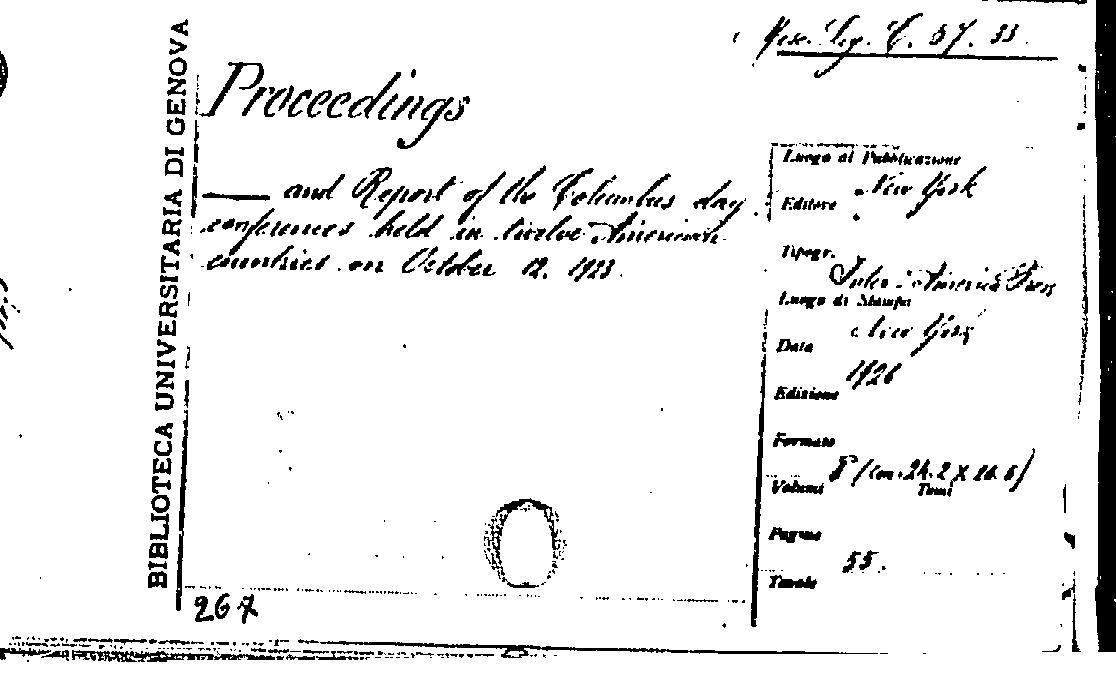 Misc. Leg. C. 57. 33.
BIBLIOTECA UNIVERSITARIA DI GENOVA
Proceedings
—— and Report of the Columbus day
conferences held in twelve American
countries on October 12. 1923.
Luogo di Pubblicazione
New York
Editore
Tipogr.
Inter-America Press
Luogo di Stampa
New York
Data
1926
Edizione
Formato
8° (cm. 24.2 X 16.5)
Volumi
Tomi
Pagine
55.
Tavole
267